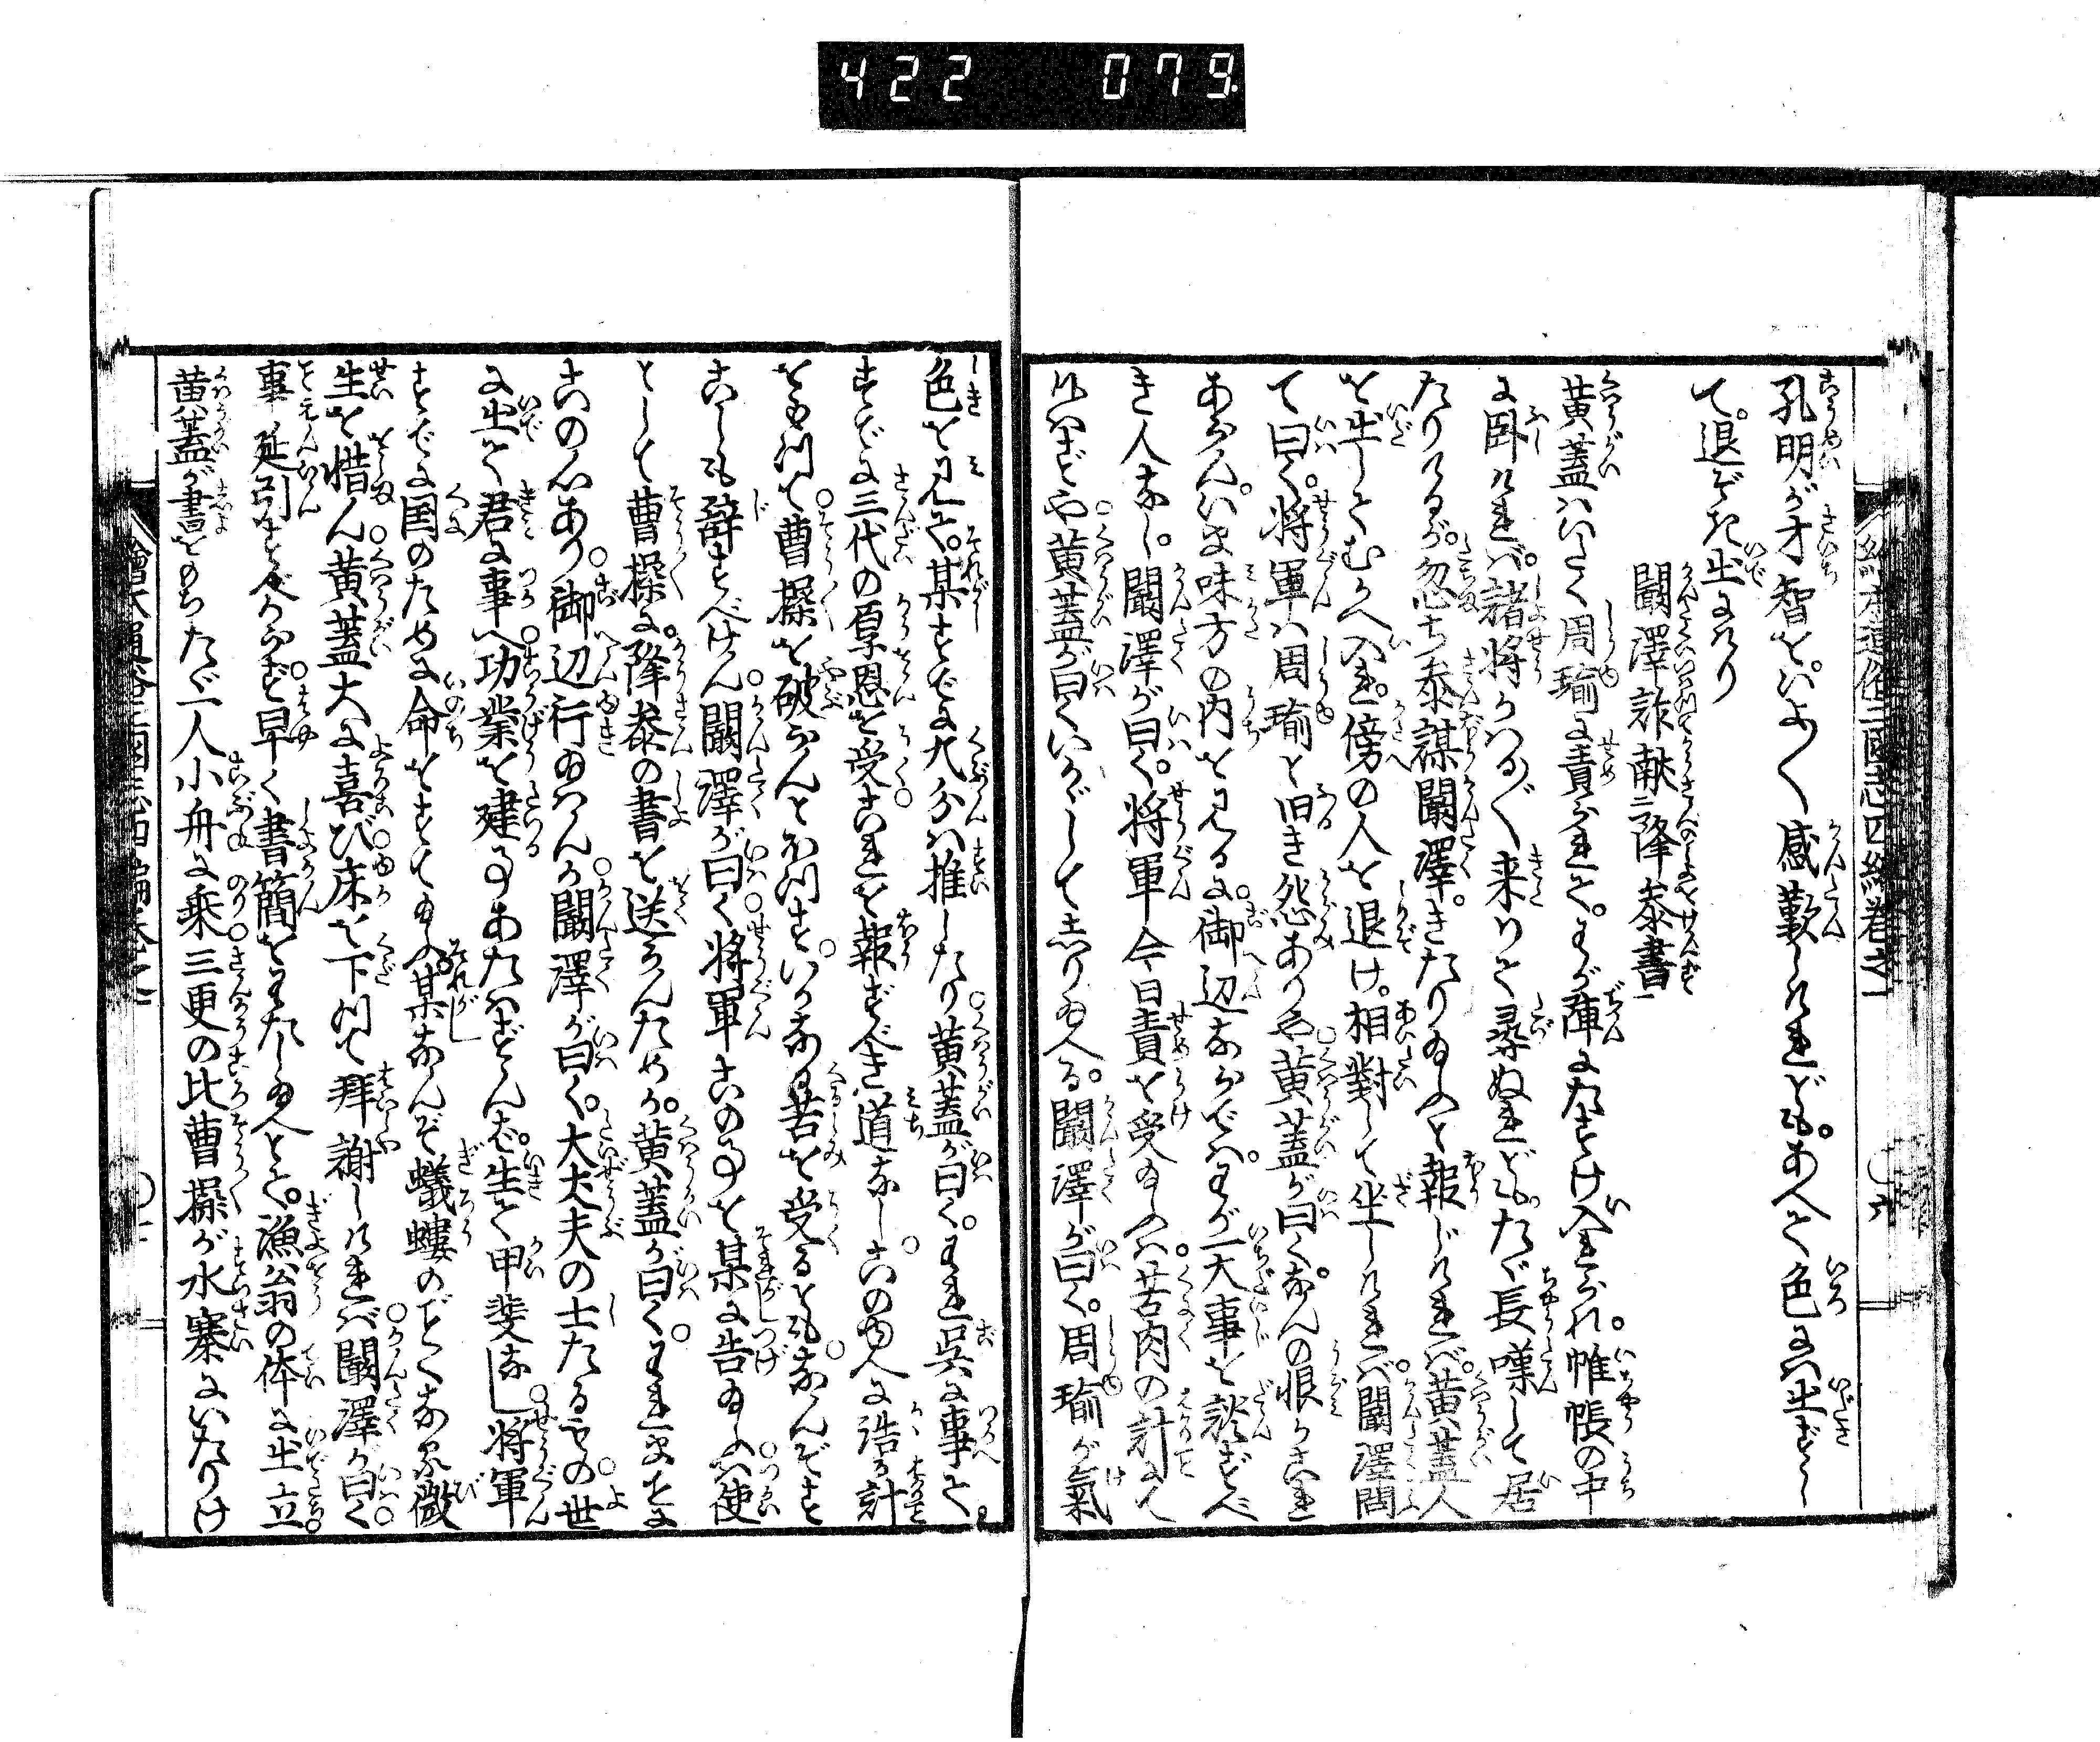 422 079
孔明が才智をいよ〱感歎しけれども。あへて色には出さずし
て。退ぞき出にけり
闞澤詐献降泰書
黄蓋はいたく周瑜に責られて。わが陣にたすけ入られ。帷帳の中
に臥ければ。諸将かはる〲来りて尋ぬれども。たゞ長嘆して居
たりけるが。忽ち泰謀闞澤。きたり給ふと報じければ。黄蓋人
を出してむかへ入れ。傍の人を退け。相對して坐しければ。闞澤問
て曰く。将軍は周瑜と旧き怨ありや。黄蓋が曰く。なんの恨かこれ
あらん。いま味方の内を見るに。御辺ならでは。わが一大事を談ずべ
き人なし。闞澤が曰く。将軍今日責を受給ふは。苦肉の計に
はあらずや。黄蓋が曰くいかゞして志り給へる。闞澤が曰く。周瑜が氣
色を見て。某すでに九分は推したり。黄蓋が曰く。われ呉に事て
すでに三代の厚恩を受。これを報ずべき道なし。この人に語る計
をもつて。曹操を破らんとほつす。いかなる苦を受るとも。なんぞす
こしも辞すべけん。闞澤が曰く。将軍この事を某に告給ふは。使
として曹操に。降泰の書を送らんためか。黄蓋が曰く。われまさに
この心あり。御辺行給はんか。闞澤が曰く。大丈夫の士たるもの。世
に出て君に事へ。功業を建る事あたはずんば。生て甲斐なし。将軍
すでに国のために命をすて給ふ。某なんぞ蟻螻のごとくなる微
生を惜ん。黄蓋大に喜び。床を下つて拜謝しければ。闞澤が曰く。
事延引すべからず。早く書簡をわたし給へとて。漁翁の体に出立。
黄蓋が書をもちたゞ一人小舟に乗。三更の比曹操が水寨にいたりけ